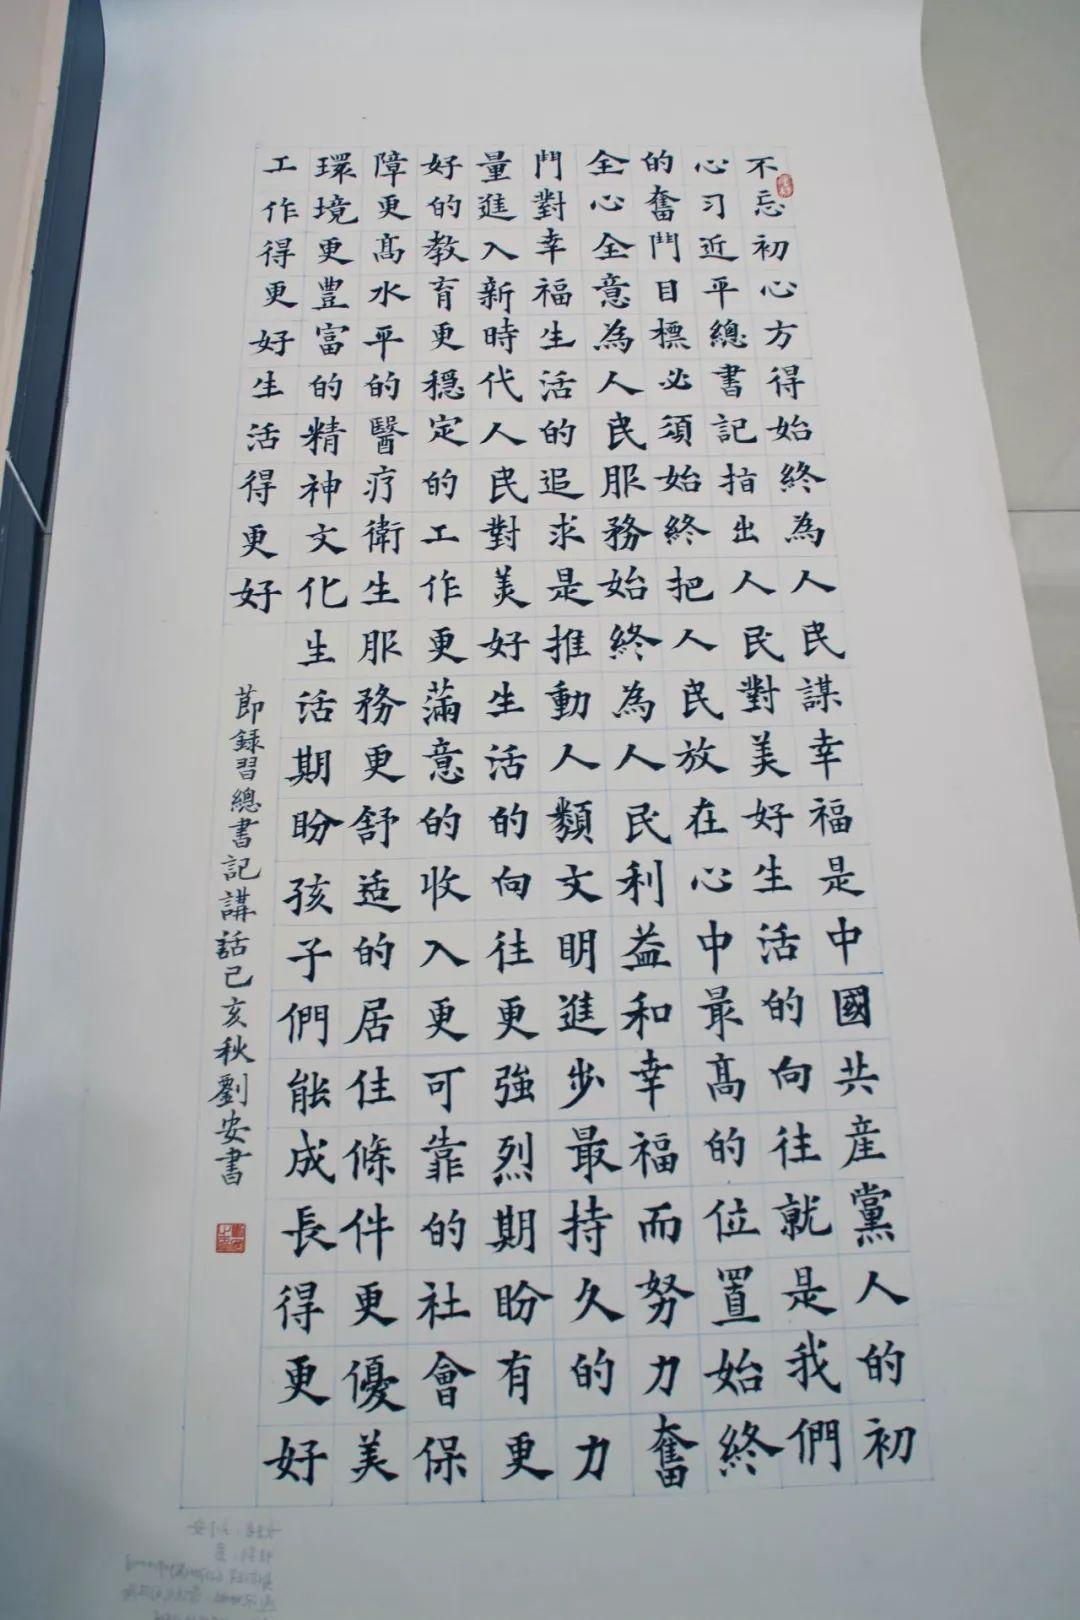 不忘初心方得始終為人民謀幸福是中國共産黨人的初
心习近平總書記指出人民對美好生活的向往就是我們
的奮鬥目標必須始終把人民放在心中最髙的位置始終
全心全意為人民服務始終為人民利益和幸福而努力奮
鬥對幸福生活的追求是推動人類文明進步最持久的力
量進入新時代人民對美好生活的向往更強烈期盼有更
好的教育更穩定的工作更滿意的收入更可靠的社會保
障更髙水平的醫疗衛生服務更舒适的居住條件更優美
環境更豐富的精神文化生活期盼孩子們能成長得更好
工作得更好生活得更好
節録習總書記講話己亥秋劉安書